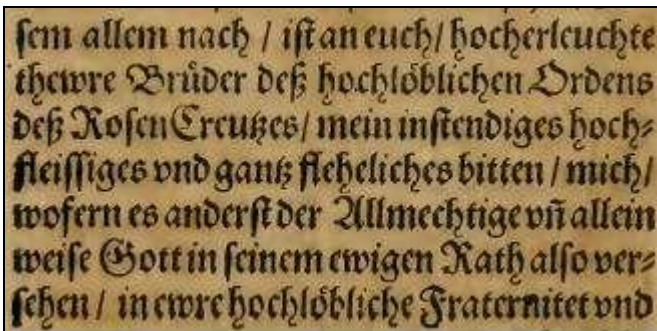 ſem allem nach / iſt an euch / hocherleuchte
thewre Bruͤder deß hochloͤblichen Ordens
deß Roſen Creutzes / mein inſtendiges hoch⸗
fleiſſiges vnd gantz fleheliches bitten / mich /
wofern es anderſt der Allmechtige vñ allein
weiſe Gott in ſeinem ewigen Rath alſo ver⸗
ſehen / in ewre hochloͤbliche Fraternitet vnd